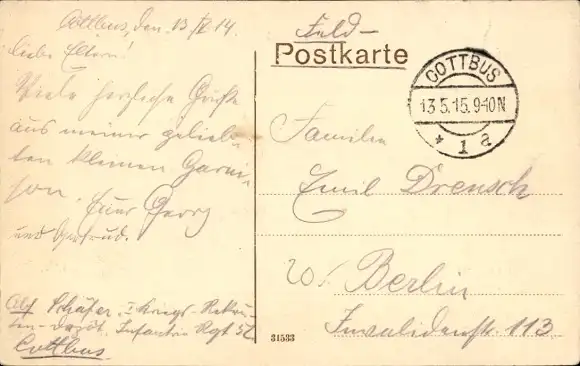 Cottbus, den 13./V. 14.
Liebe Eltern!
Viele herzliche Grüße
aus meiner gelieb-
ten kleinen Garni-
son. Euer Georg
und Gertrud.
Abs. Schäfer, I Kriegs-Rekru-
ten-Depot, Infantrie Rgt 52
Cottbus.
Feld-
Postkarte
COTTBUS
13.5.15.9-10N
* 1 a
Familie
Emil Drensch
Berlin
Invalidenstr. 113
31533